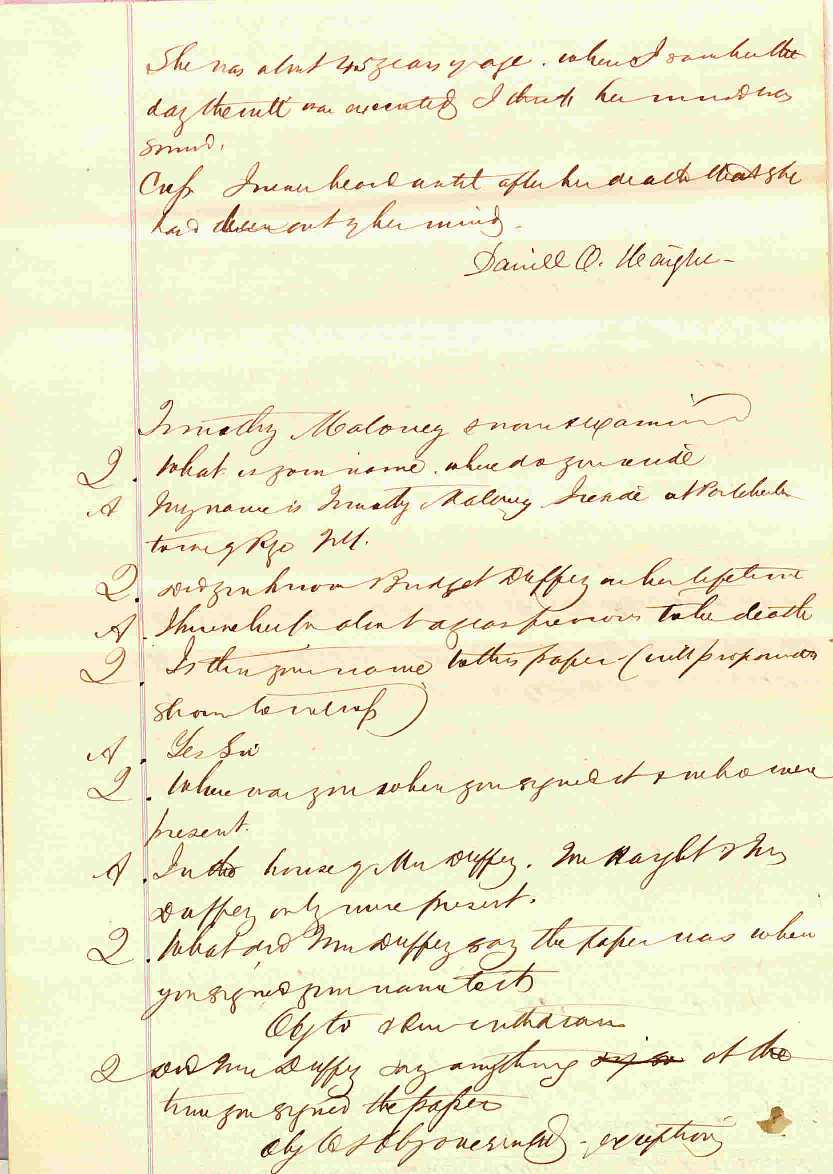 She was about 45 years of age. when I saw her the
day the will was executed I think her mind was
sound.
Cross I never heard until after her death that she
had been out of her mind.
Daniell O.
Timothy Maloney sworn & examined
Q. What is your name. where do you reside
A My name is Timothy Maloney I reside at Portchester
town of Rye NY.
Q. Did you know Bridget Duffey in her lifetime
A. I knew her for about a year previous to her death
Q. Is this your name to this paper (will propounded
shown to witness)
A. Yes Sir
Q. Where was you when you signed it & who were
present.
A. In the house of Mrs Duffey. Mr & Mrs
Duffey only were present.
Q. What did Mrs Duffey say the paper was when
you signed your name to it
Obj to & withdrawn
Q Did Mrs Duffey say anything at the
time you signed the paper
obj to & obj overruled - exception